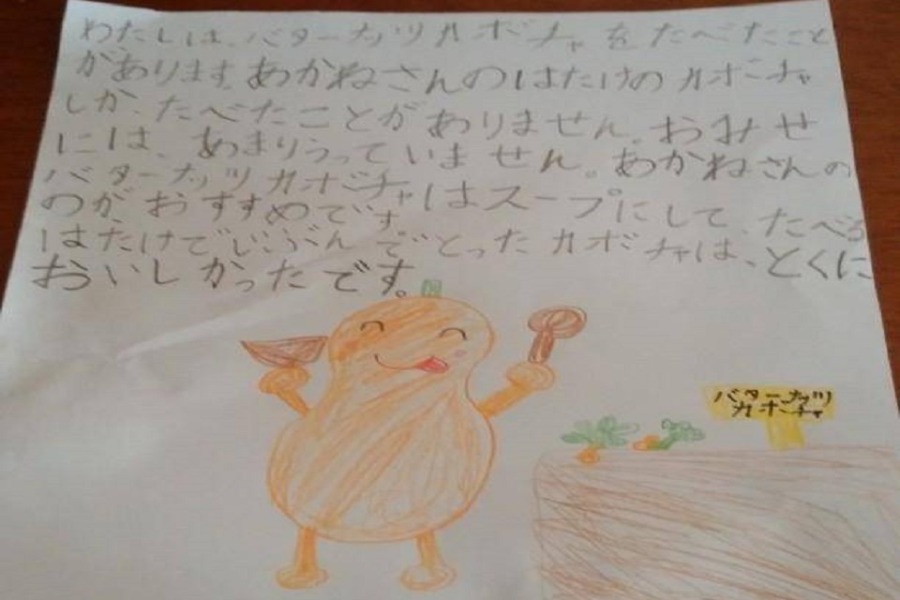 わたしは、バターナッツカボチャをたべたこと
があります。あかねさんのはたけのカボチャ
しか、たべたことがありません。おみせ
には、あまりうっていません。あかねさんの
バターナッツカボチャはスープにして、たべる
のが、おすすめです。
はたけでじぶんでとったカボチャは、とくに
おいしかったです。
バターナッツ
カボチャ